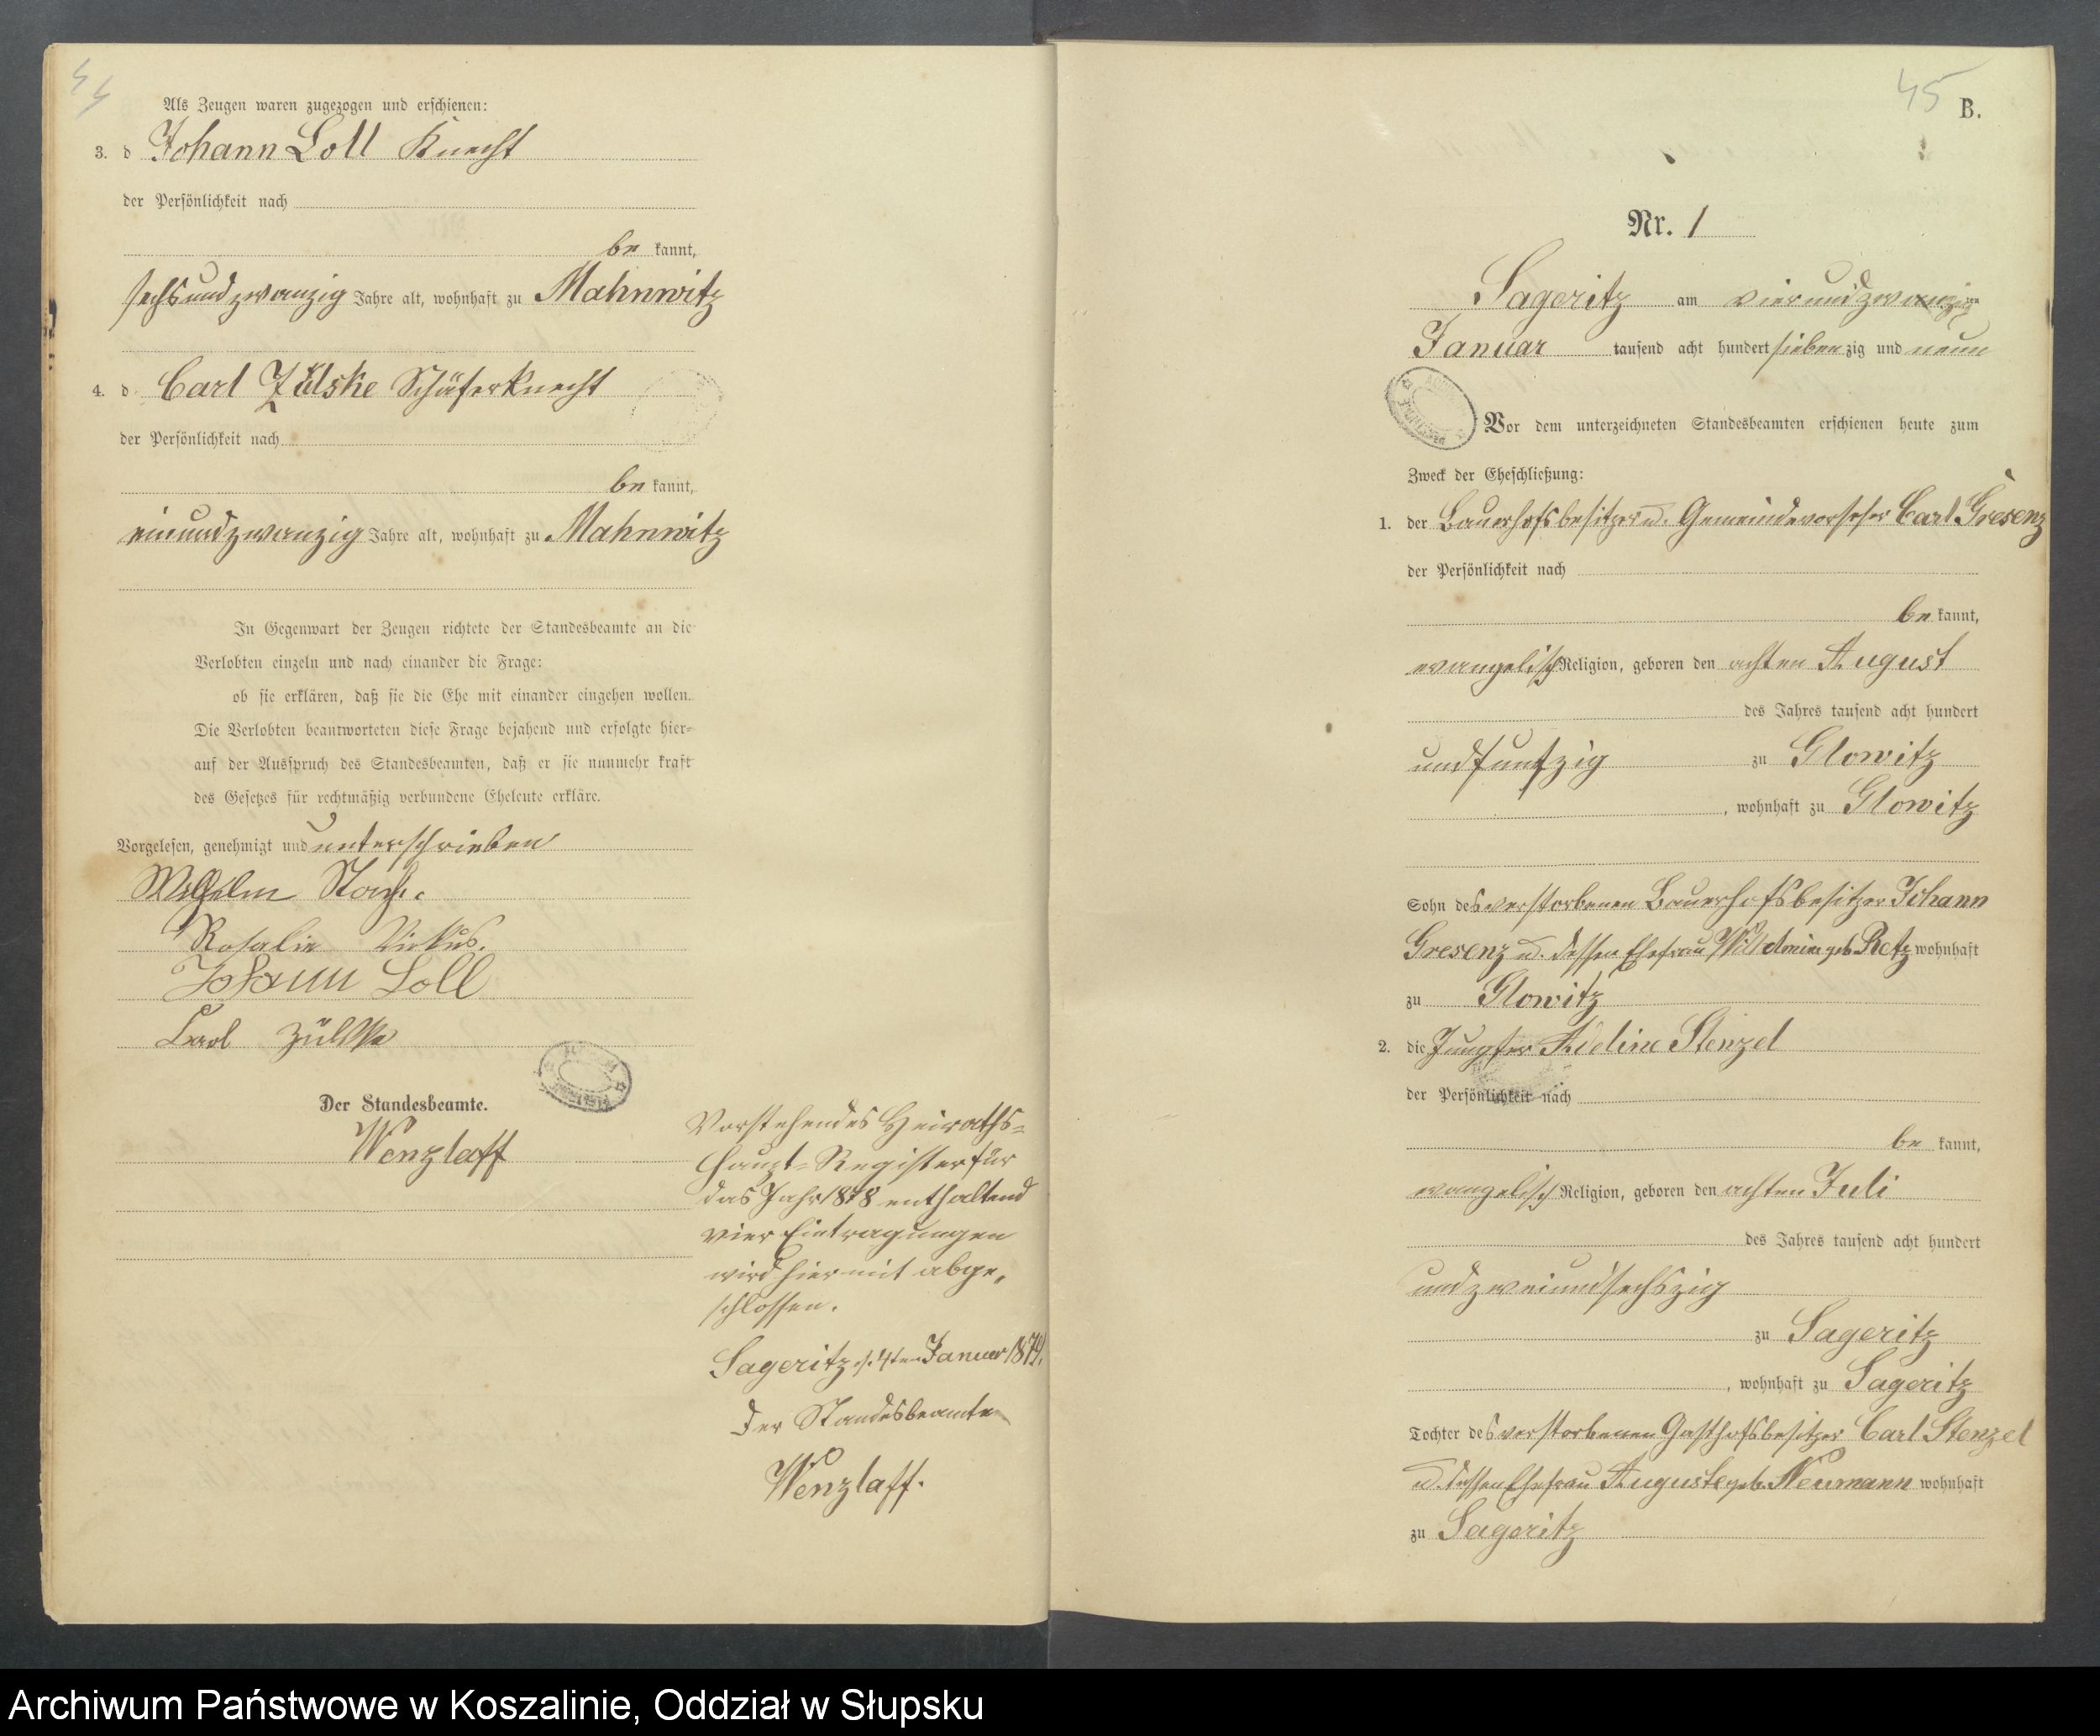 44
Als Zeugen waren zugezogen und erschienen:
3. d Johann Loll Knecht
der Persönlichkeit nach
be kannt,
sechsundzwanzig Jahre alt, wohnhaft zu Mahnwitz
4. d Carl Zülske Schäferknecht
der Persönlichkeit nach
be kannt,
einundzwanzig Jahre alt, wohnhaft zu Mahnwitz
In Gegenwart der Zeugen richtete der Standesbeamte an die
Verlobten einzeln und nach einander die Frage:
ob sie erklären, daß sie die Ehe mit einander eingehen wollen.
Die Verlobten beantworteten diese Frage bejahend und erfolgte hier-
auf der Ausspruch des Standesbeamten, daß er sie nunmehr kraft
des Gesetzes für rechtmäßig verbundene Eheleute erkläre.
Vorgelesen, genehmigt und unterschrieben
Wilhelm
Rosalie Virkus.
Johann Loll
Carl Zülske
Der Standesbeamte.
Wenzlaff
Vorstehendes Heiraths-
Haupt-Register für
das Jahr 1878 enthaltend
vier Eintragungen
wird hiermit abge-
schlossen.
Sageritz, d. 4ten Januar 1879.
Der Standesbeamte
Wenzlaff.
45
B.
Nr. 1
Sageritz am vierundzwanzigsten
Januar tausend acht hundert siebenzig und neun
Vor dem unterzeichneten Standesbeamten erschienen heute zum
Zweck der Eheschließung:
1. der Bauerhofsbesitzer u. Gemeindevorsteher Carl Gresenz
der Persönlichkeit nach
be kannt,
evangelisch Religion, geboren den achten August
des Jahres tausend acht hundert
und funfzig zu Glowitz
, wohnhaft zu Glowitz
Sohn des verstorbenen Bauerhofsbesitzer Johann
Gresenz u. dessen Ehefrau Wilhelmine geb. Retz wohnhaft
zu Glowitz
2. die Jungfer Adeline Stenzel
der Persönlichkeit nach
be kannt,
evangelisch Religion, geboren den achten Juli
des Jahres tausend acht hundert
und zweiundsechszig
zu Sageritz
, wohnhaft zu Sageritz
Tochter des verstorbenen Gasthofsbesitzer Carl Stenzel
u. dessen Ehefrau Auguste geb. Neumann wohnhaft
zu Sageritz
Archiwum Państwowe w Koszalinie, Oddział w Słupsku